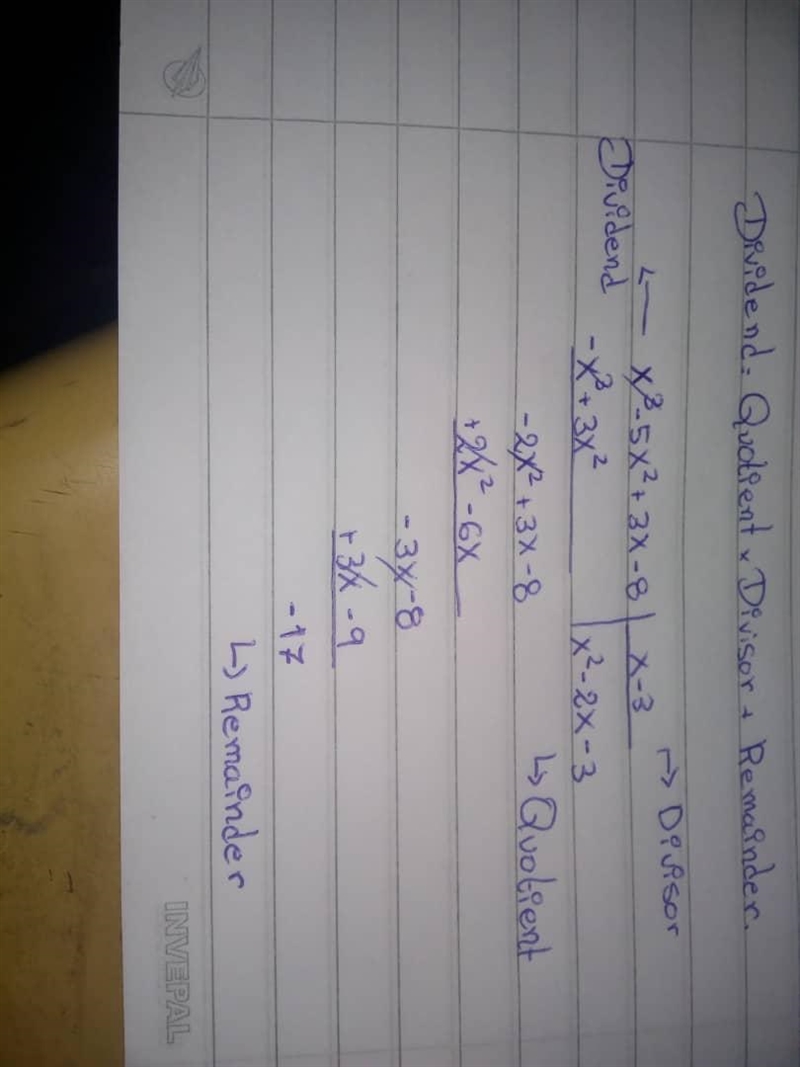 Dividend = Quotient × Divisor + Remainder.
x³ - 5x² + 3x - 8 | x - 3 → Divisor
Dividend
-x³ + 3x² x² - 2x - 3
→ Quotient
-2x² + 3x - 8
+2x² - 6x
-3x - 8
+3x - 9
-17
↳ Remainder
INVEPAL